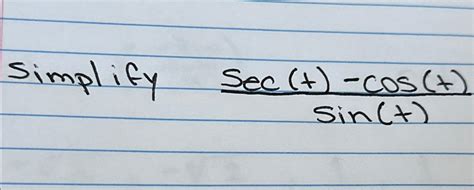 Simplify sec(t) - cos(t)
sin(t)